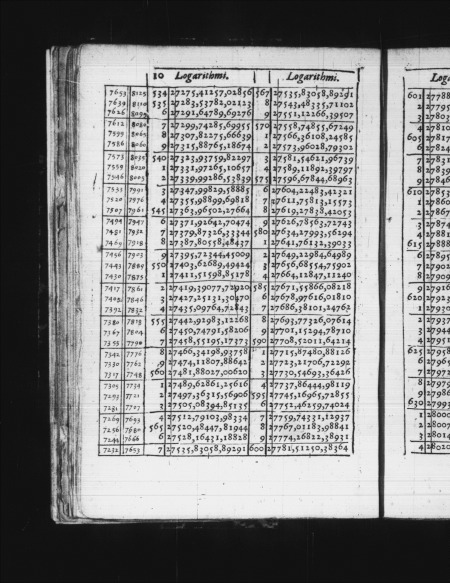 10 Logarithmi. | Logarithmi.
7653 8125 534 27275,41257,02856 567 27535,83058,89291
7639 8110 535 27283,53782,02123 8 27543,48335,71102
7626 8095 6 27291,64789,69276 9 27551,12266,39507
7612 8080 7 27299,74285,69955 570 27558,74855,67249
7599 8065 8 27307,82275,66639 1 27566,36108,24585
7586 8060 9 27315,88765,18674 2 27573,96028,79302
7573 8035 540 27323,93759,82297 3 27581,54621,96739
7559 8020 1 27331,97265,10657 4 27589,11892,39797
7546 8005 2 27339,99286,53839 575 27596,67844,68963
7533 7991 3 27347,99829,58885 6 27604,22483,42321
7520 7976 4 27355,98899,69818 7 27611,75813,15573
7507 7961 545 27363,96502,27664 8 27619,27838,42053
7494 7947 6 27371,92642,70474 9 27626,78563,72743
7481 7932 7 27379,87326,33344 580 27634,27993,56294
7469 7918 8 27387,80558,48437 1 27641,76132,39033
7456 7903 9 27395,72344,45009 2 27649,22984,64989
7443 7889 550 27403,62689,49424 3 27656,68554,75902
7430 7875 1 27411,51598,85178 4 27664,12847,11240
7417 7861 2 27419,39077,72920 585 27671,55866,08218
7405 7846 3 27427,25131,30470 6 27678,97616,01810
7392 7832 4 27435,09764,72843 7 27686,38101,24762
7380 7818 555 27442,92983,12268 8 27693,77326,07614
7367 7804 6 27450,74791,58206 9 27701,15294,78710
7355 7790 7 27458,55195,17373 590 27708,52011,64214
7342 7776 8 27466,34198,93758 1 27715,87480,88126
7330 7762 9 27474,11807,88642 2 27723,21706,72292
7317 7748 560 27481,88027,00620 3 27730,54693,36426
7305 7734 1 27489,62861,25616 4 27737,86444,98119
7293 7721 2 27497,36315,56906 595 27745,16965,72855
7281 7707 3 27505,08394,85135 6 27752,46259,74024
7269 7693 4 27512,79103,98334 7 27759,74331,12937
7256 7680 565 27520,48447,81944 8 27767,01183,98841
7244 7666 6 27528,16431,18828 9 27774,26822,38931
7232 7653 7 27535,83058,89291 600 27781,51250,38364